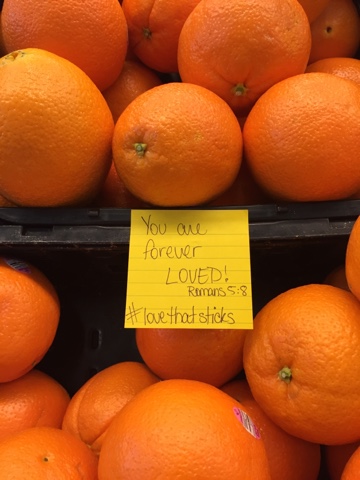 You are
forever
LOVED!
Romans 5:8
#lovethatsticks